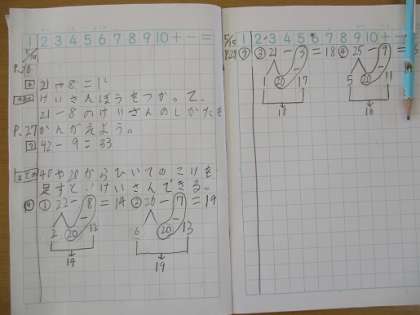 1 2 3 4 5 6 7 8 9 10 + - =
5/15
P.26
21-8=13
けいさんぼうをつかって、
21-8のけいさんのしかたを
P.27 かんがえよう。
42-9=33
40や20からひいてのこりを
足すと、けいさんできる。
① 22-8=14 ② 26-7=19
2 20 12 6 20 13
14 19
1 2 3 4 5 6 7 8 9 10 + - =
5/15
P.27 ③ 21-3=18 ④ 25-9=
1 20 17 5 20 11
18